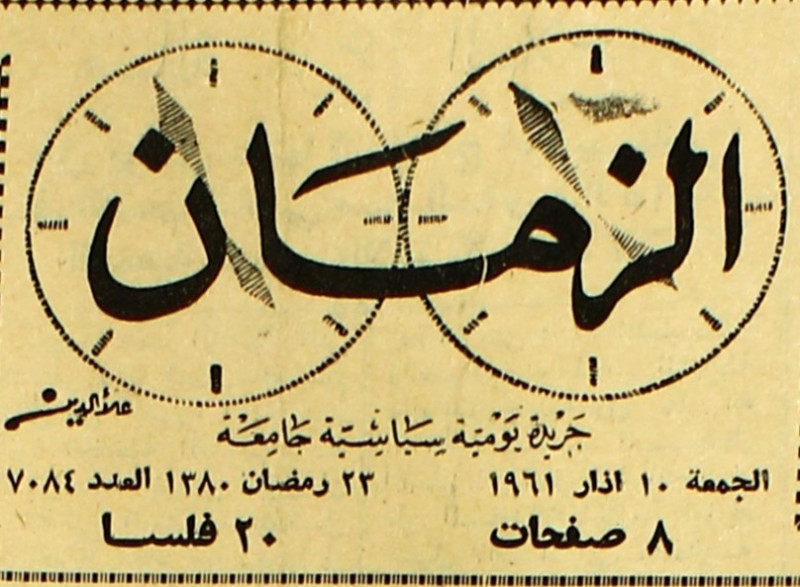 الزمان
علاءالدين
جريدة يومية سياسية جامعة
الجمعة ١٠ اذار ١٩٦١
٢٣ رمضان ١٣٨٠ العدد ٧٠٨٤
٨ صفحات
٢٠ فلسا